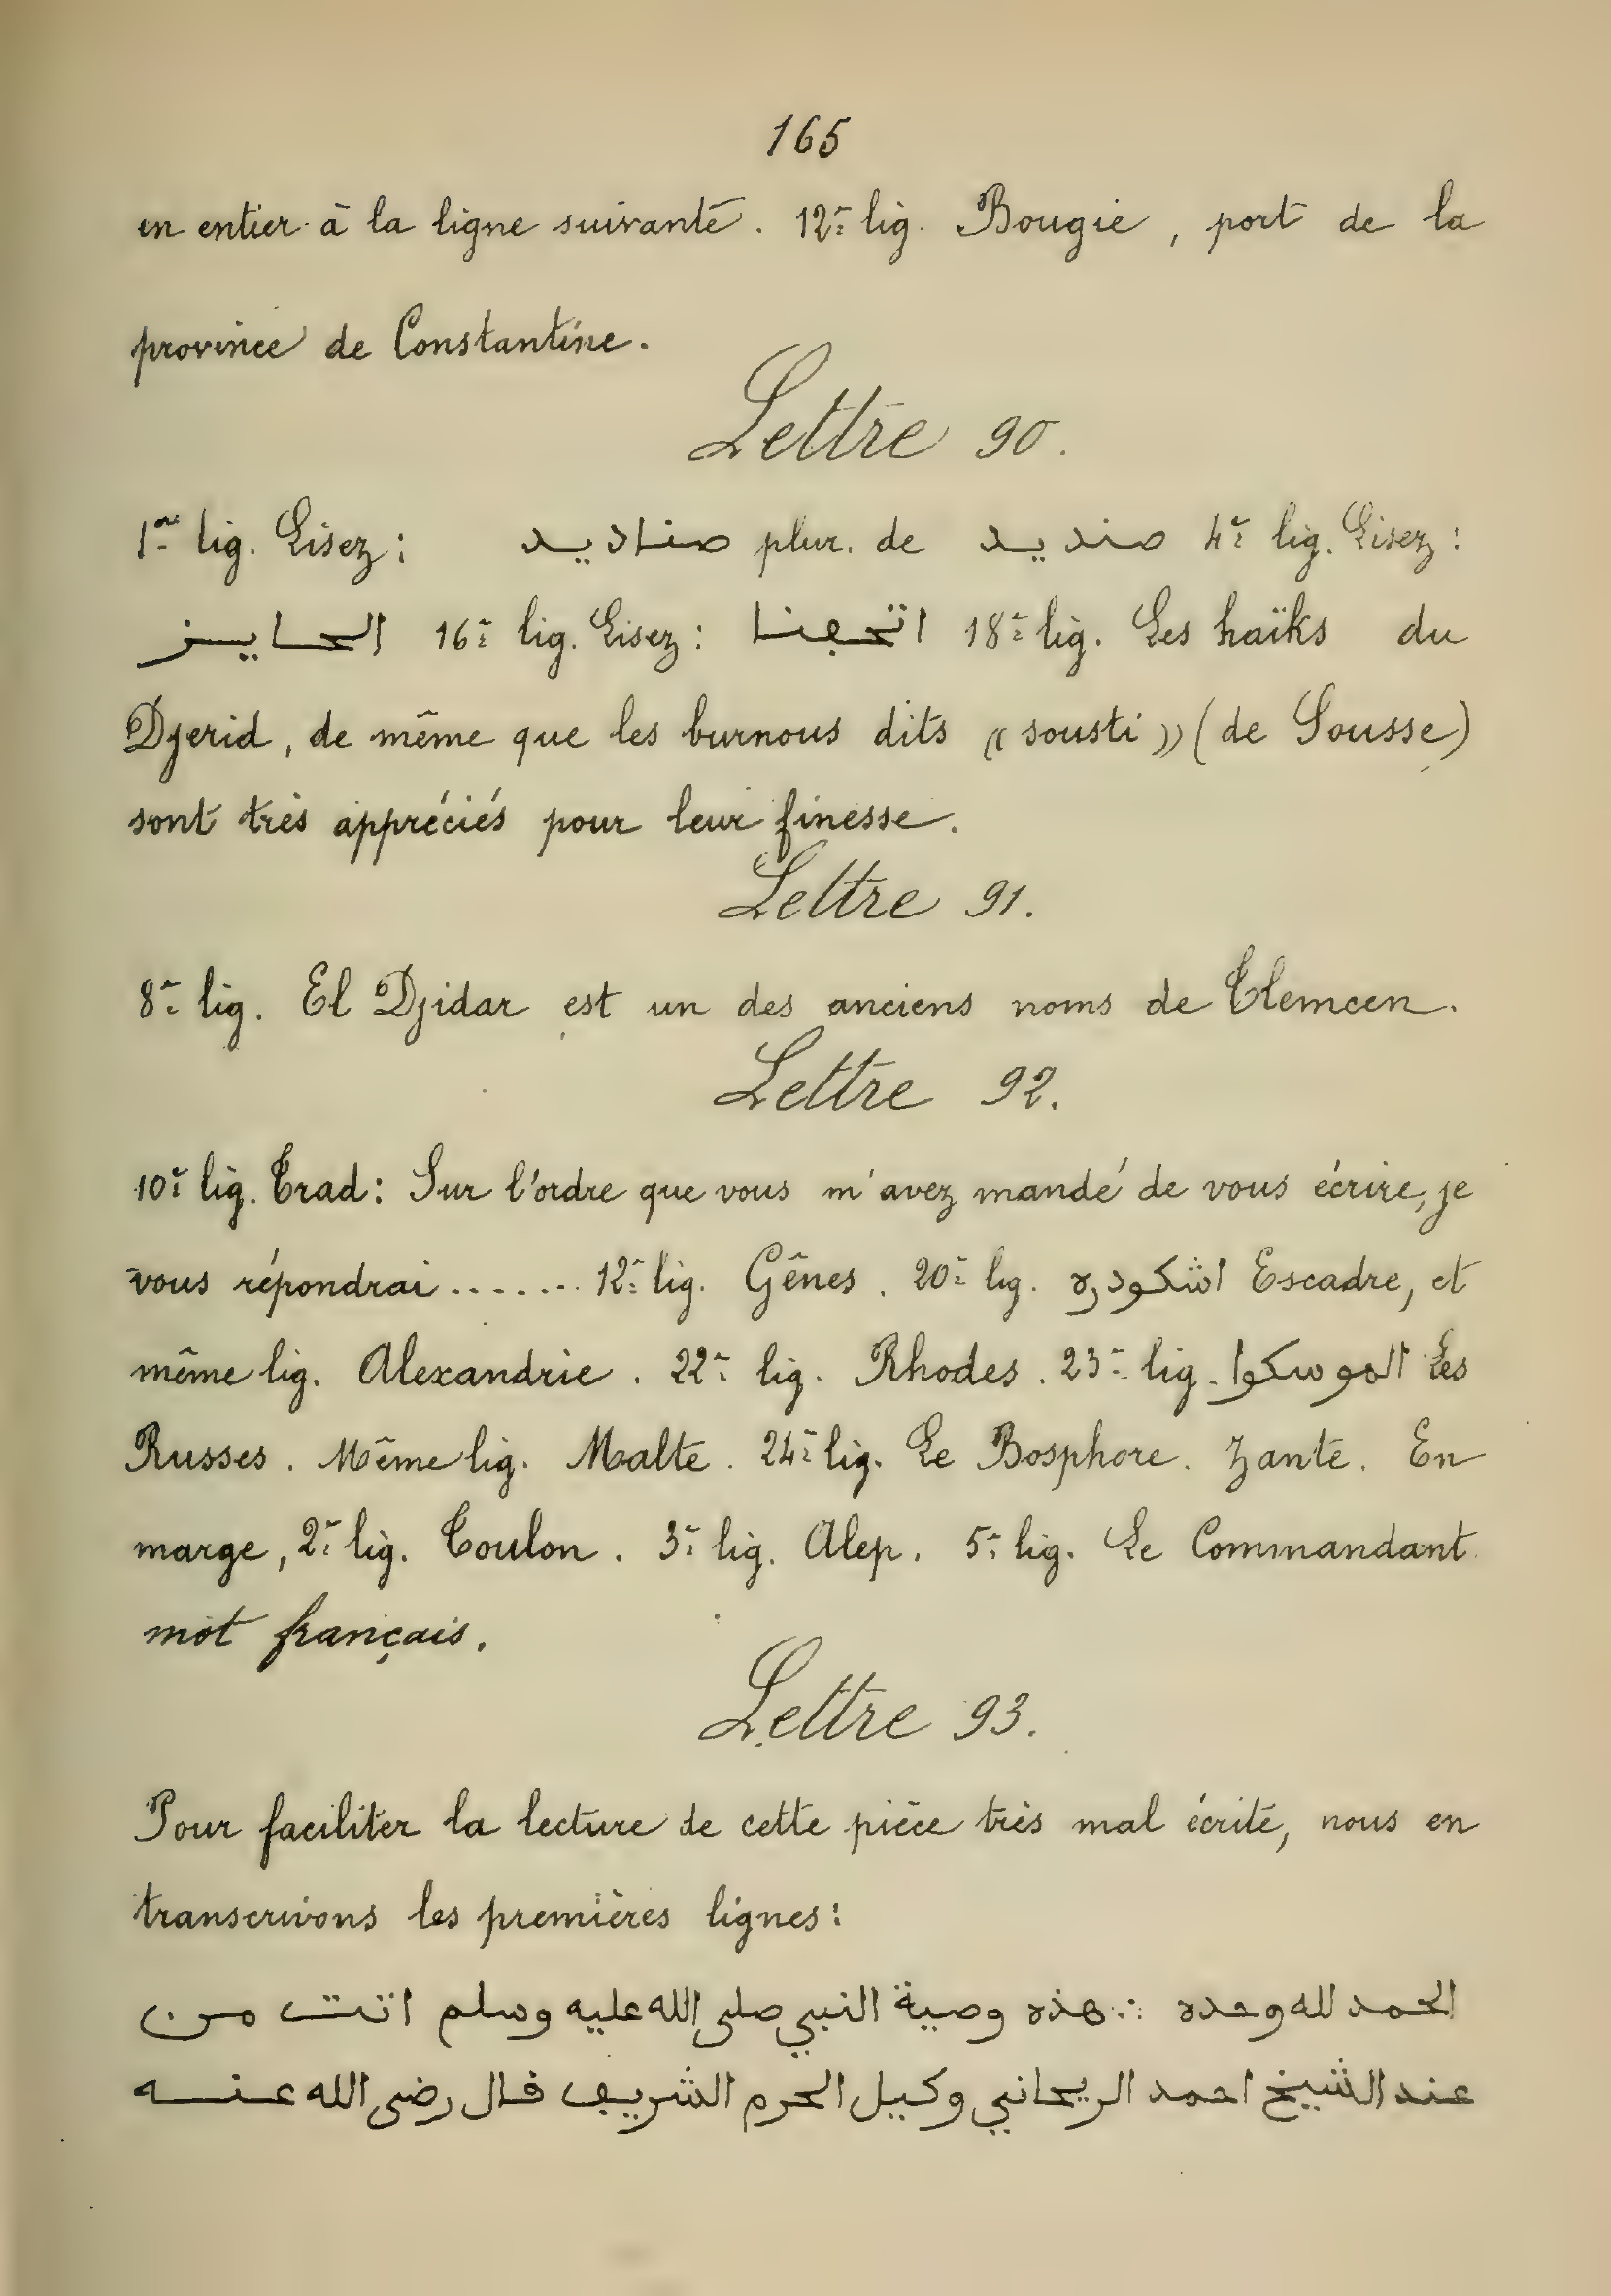 165
en entier à la ligne suivante. 12ᵉ lig. Bougie, port de la
province de Constantine.
Lettre 90.
1ʳᵉ lig. Lisez: صناديد plur. de صنديد 4ᵉ lig. Lisez:
الحايز 16ᵉ lig. Lisez: اتحفنا 18ᵉ lig. Les haïks du
Djerid, de même que les burnous dits « sousti » (de Sousse)
sont très appréciés pour leur finesse.
Lettre 91.
8ᵉ lig. El Djidar est un des anciens noms de Tlemcen.
Lettre 92.
10ᵉ lig. Trad: Sur l'ordre que vous m'avez mandé de vous écrire, je
vous répondrai ....... 12ᵉ lig. Gênes. 20ᵉ lig. اشكودره Escadre, et
même lig. Alexandrie. 22ᵉ lig. Rhodes. 23ᵉ lig. الموسكوا Les
Russes. Même lig. Malte. 24ᵉ lig. Le Bosphore. Zante. En
marge, 2ᵉ lig. Toulon. 3ᵉ lig. Alep. 5ᵉ lig. Le Commandant
mot français.
Lettre 93.
Pour faciliter la lecture de cette pièce très mal écrite, nous en
transcrivons les premières lignes:
الحمد لله وحده ∴ هذه وصية النبي صلى الله عليه وسلم اتت من
عند الشيخ احمد الريحاني وكيل الحرم الشريڢ ڧال رضى الله عنه